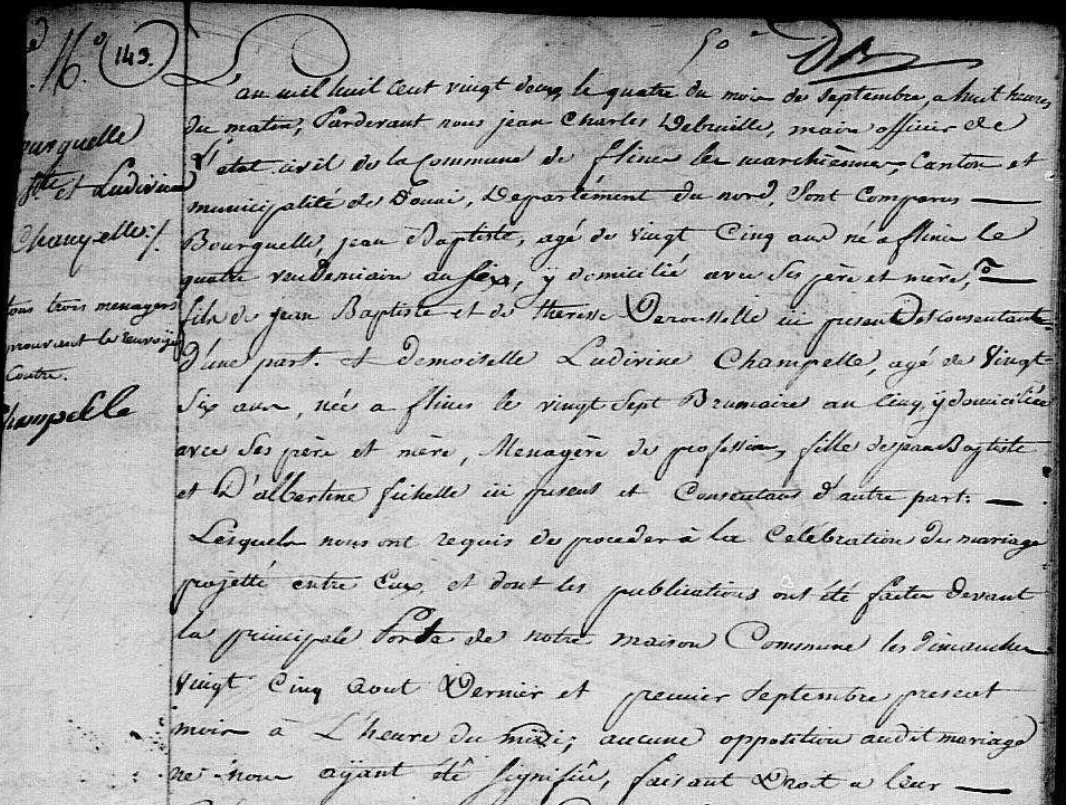 No 143.
50e
L'an mil huit cent vingt deux, le quatre du mois de Septembre, a huit heures
du matin, Pardevant nous jean Charles Debruille, maire officier de
L'etat civil de la Commune de flines lez marchiennes, Canton et
municipalité de Douai, Departément du nord, Sont Comparus —
Bourguelle, jean Baptiste, agé de vingt Cinq ans né a flines le
quatre vendemiaire an six, y domicilié avec Ses père et mère, —
fils de jean Baptiste et de theresse Derousselle ici present et consentante
D'une part. et demoiselle Ludivine Champelle, agé de Vingt-
Six ans, née a flines le vingt Sept Brumaire an Cinq, y domiciliée
avec Ses père et mère, Menagère de profession, fille de jean Baptiste
et D'albertine fichelle ici present et Consentans d'autre part. —
Lesquels nous ont requis de proceder à la Celébration du mariage
projetté entre Eux, et dont les publications ont été faites devant
la principale Porte de notre maison Commune les dimanches
Vingt Cinq aout Dernier et premier Septembre present
mois à L'heure du midi; aucune opposition audit mariage
ne nous aÿant été Signifiée, faisant Droit a leur —
ourguelle
ste et Ludivine
Champelle ./.
tous trois menagers
prouvant le renvoi
Contre.
Champelle